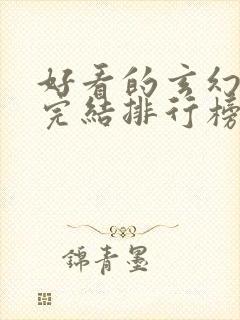 好看的玄幻
完結排行榜
錦青墨